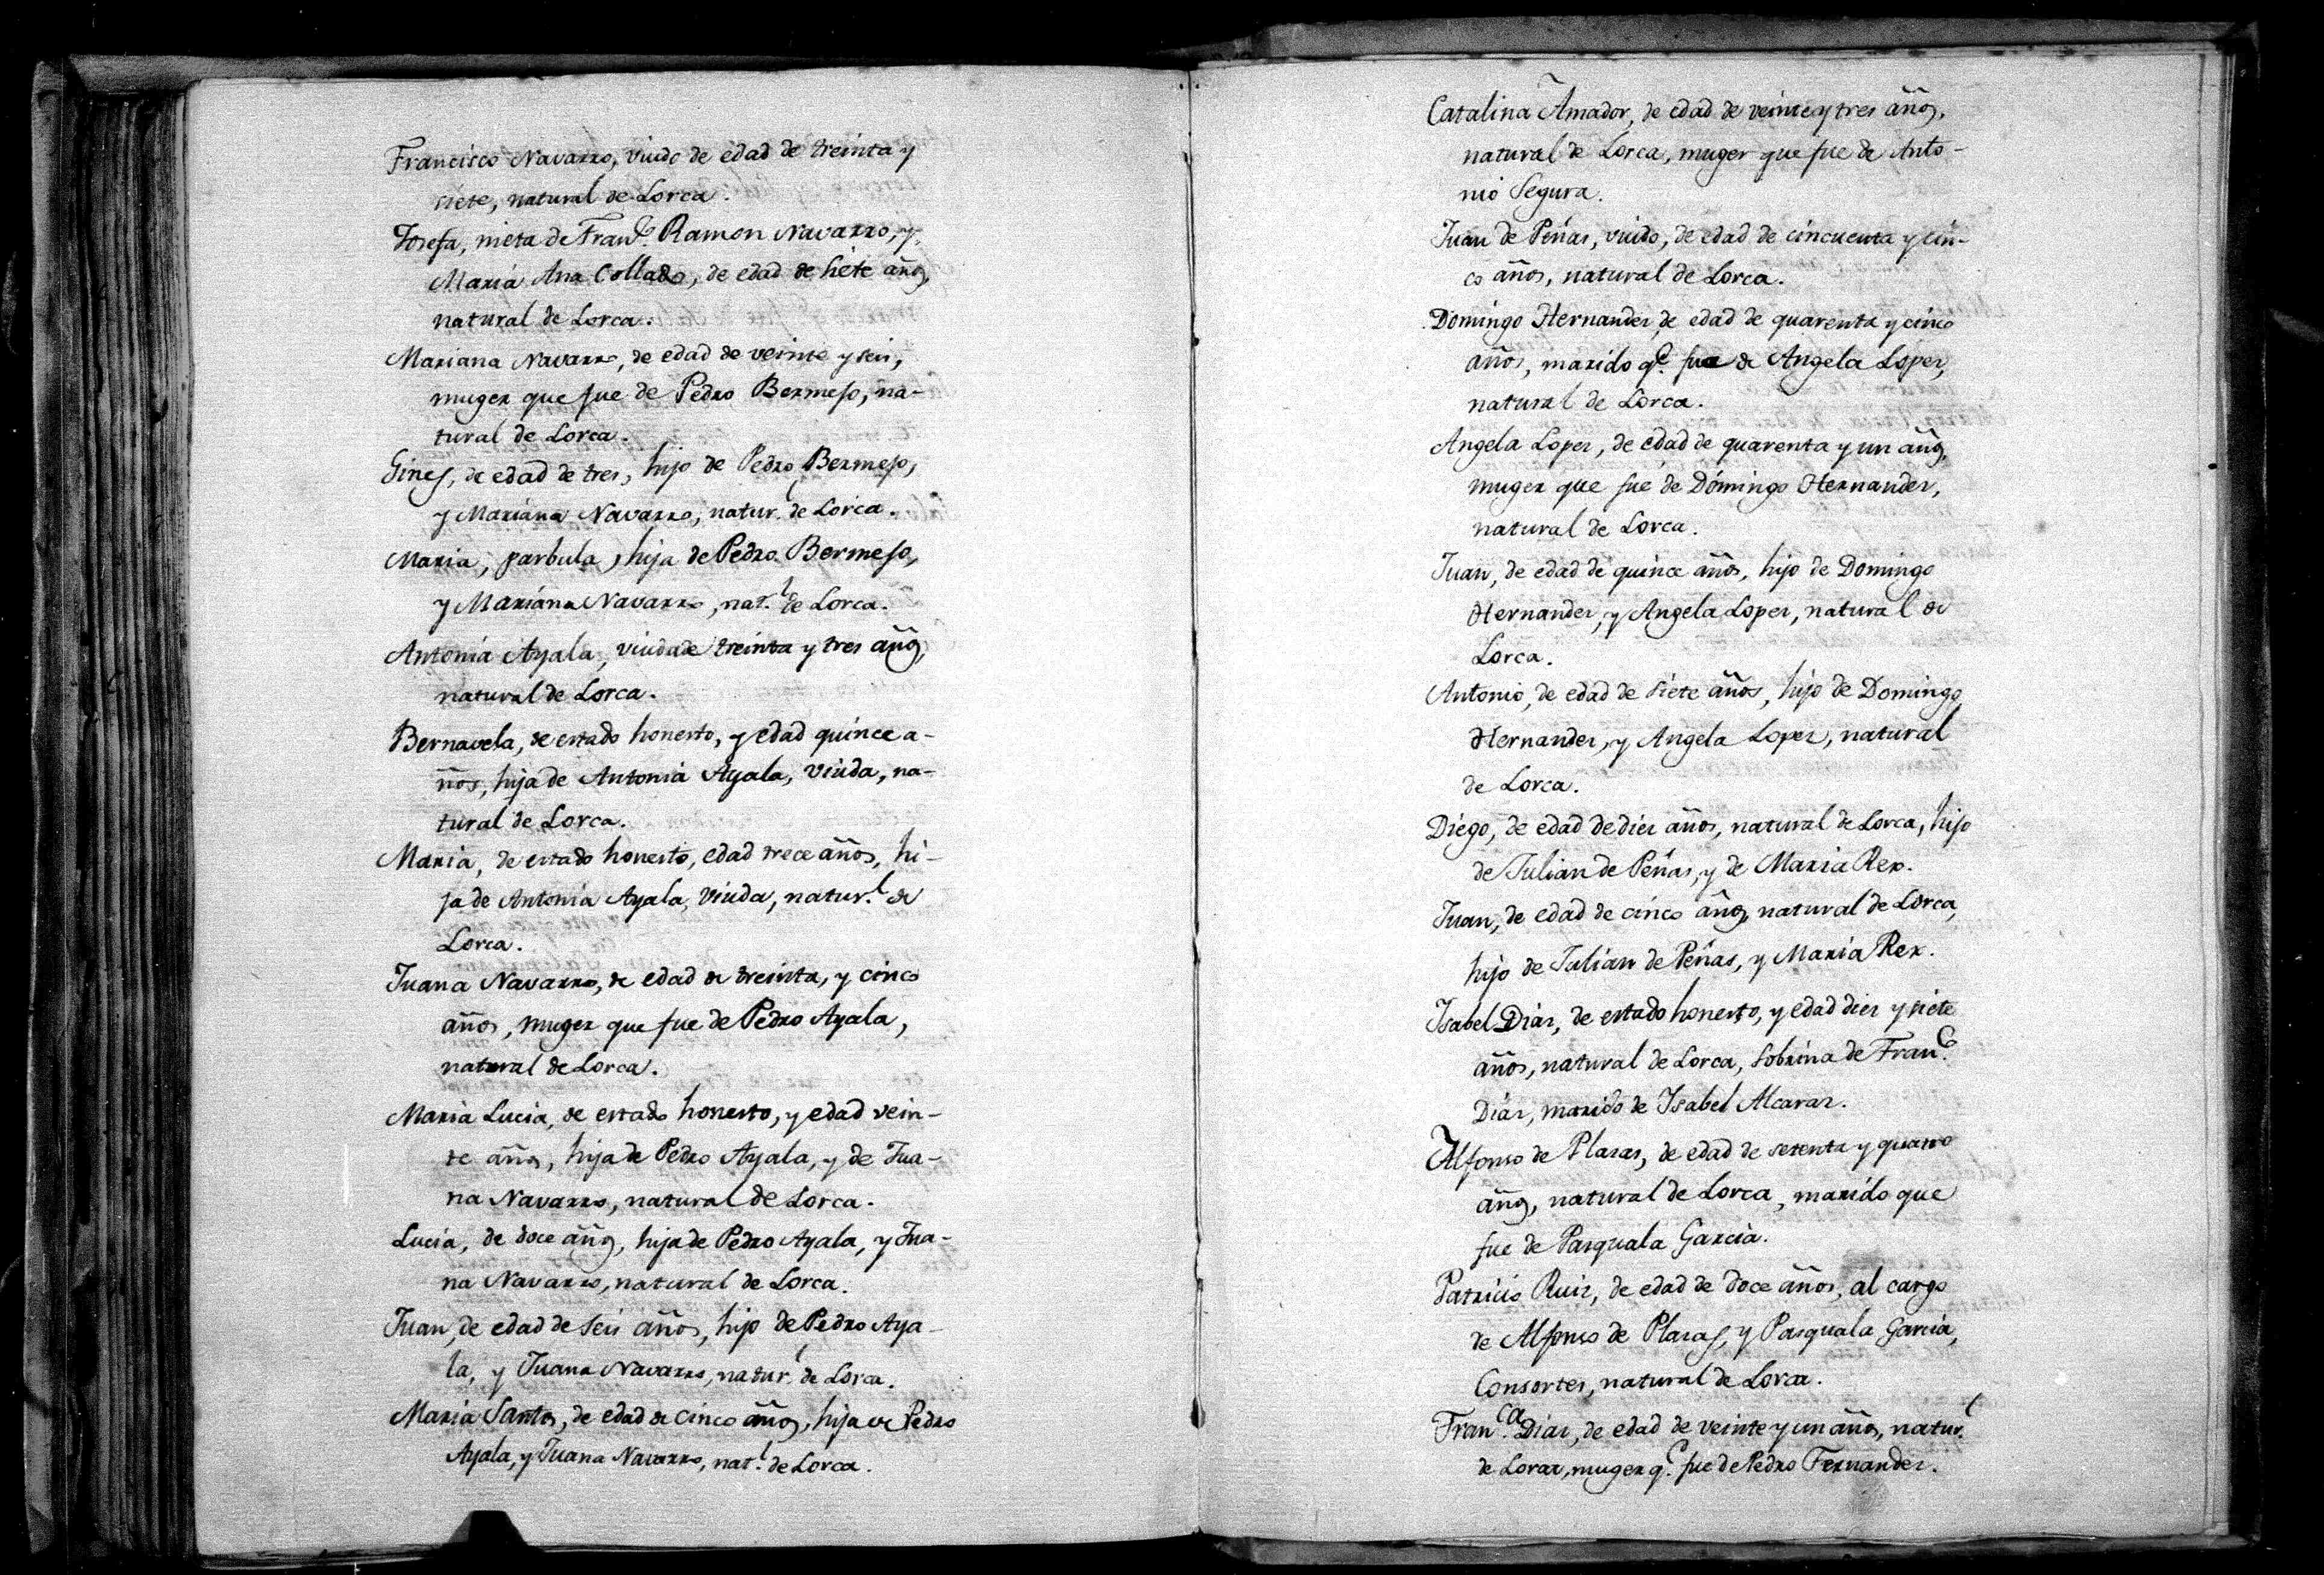 Francisco Navarro, viudo de edad de treinta y
siete, natural de Lorca.
Josefa, nieta de Fran.co Ramon Navarro, y
Maria Ana Collado, de edad de siete años,
natural de Lorca.
Mariana Navarro, de edad de veinte y seis,
muger que fue de Pedro Bermejo, na-
tural de Lorca.
Gines, de edad de tres, hijo de Pedro Bermejo,
y Mariana Navarro, natur.l de Lorca.
Maria, parbula, hija de Pedro Bermejo,
y Mariana Navarro, nat.l de Lorca.
Antonia Ayala, viuda de treinta y tres años,
natural de Lorca.
Bernavela, de estado honesto, y edad quince a-
ños, hija de Antonia Ayala, viuda, na-
tural de Lorca.
Maria, de estado honesto, edad trece años, hi-
ja de Antonia Ayala, viuda, natur.l de
Lorca.
Juana Navarro, de edad de treinta, y cinco
años, muger que fue de Pedro Ayala,
natural de Lorca.
Maria Lucia, de estado honesto, y edad vein-
te años, hija de Pedro Ayala, y de Jua-
na Navarro, natural de Lorca.
Lucia, de doce años, hija de Pedro Ayala, y Jua-
na Navarro, natural de Lorca.
Juan, de edad de seis años, hijo de Pedro Aya-
la, y Juana Navarro, natur.l de Lorca.
Maria Santos, de edad de cinco años, hija de Pedro
Ayala, y Juana Navarro, nat.l de Lorca.
Catalina Amador, de edad de veinte y tres años,
natural de Lorca, muger que fue de Anto-
nio Segura.
Juan de Peñas, viudo, de edad de cincuenta y cin-
co años, natural de Lorca.
Domingo Hernandez, de edad de quarenta y cinco
años, marido q.e fue de Angela Lopez,
natural de Lorca.
Angela Lopez, de edad de quarenta y un años,
muger que fue de Domingo Hernandez,
natural de Lorca.
Juan, de edad de quince años, hijo de Domingo
Hernandez, y Angela Lopez, natural de
Lorca.
Antonio, de edad de siete años, hijo de Domingo
Hernandez, y Angela Lopez, natural
de Lorca.
Diego, de edad de diez años, natural de Lorca, hijo
de Julian de Peñas, y de Maria Rex.
Juan, de edad de cinco años, natural de Lorca,
hijo de Julian de Peñas, y Maria Rex.
Isabel Diaz, de estado honesto, y edad diez y siete
años, natural de Lorca, sobrina de Fran.co
Diaz, marido de Isabel Alcaraz.
Alfonso de Plazas, de edad de setenta y quatro
años, natural de Lorca, marido que
fue de Pasquala Garcia.
Patricio Ruiz, de edad de doce años, al cargo
de Alfonso de Plazas, y Pasquala Garcia,
Consortes, natural de Lorca.
Fran.ca Diaz, de edad de veinte y un años, natur.l
de Lorca, muger q.e fue de Pedro Fernandez.